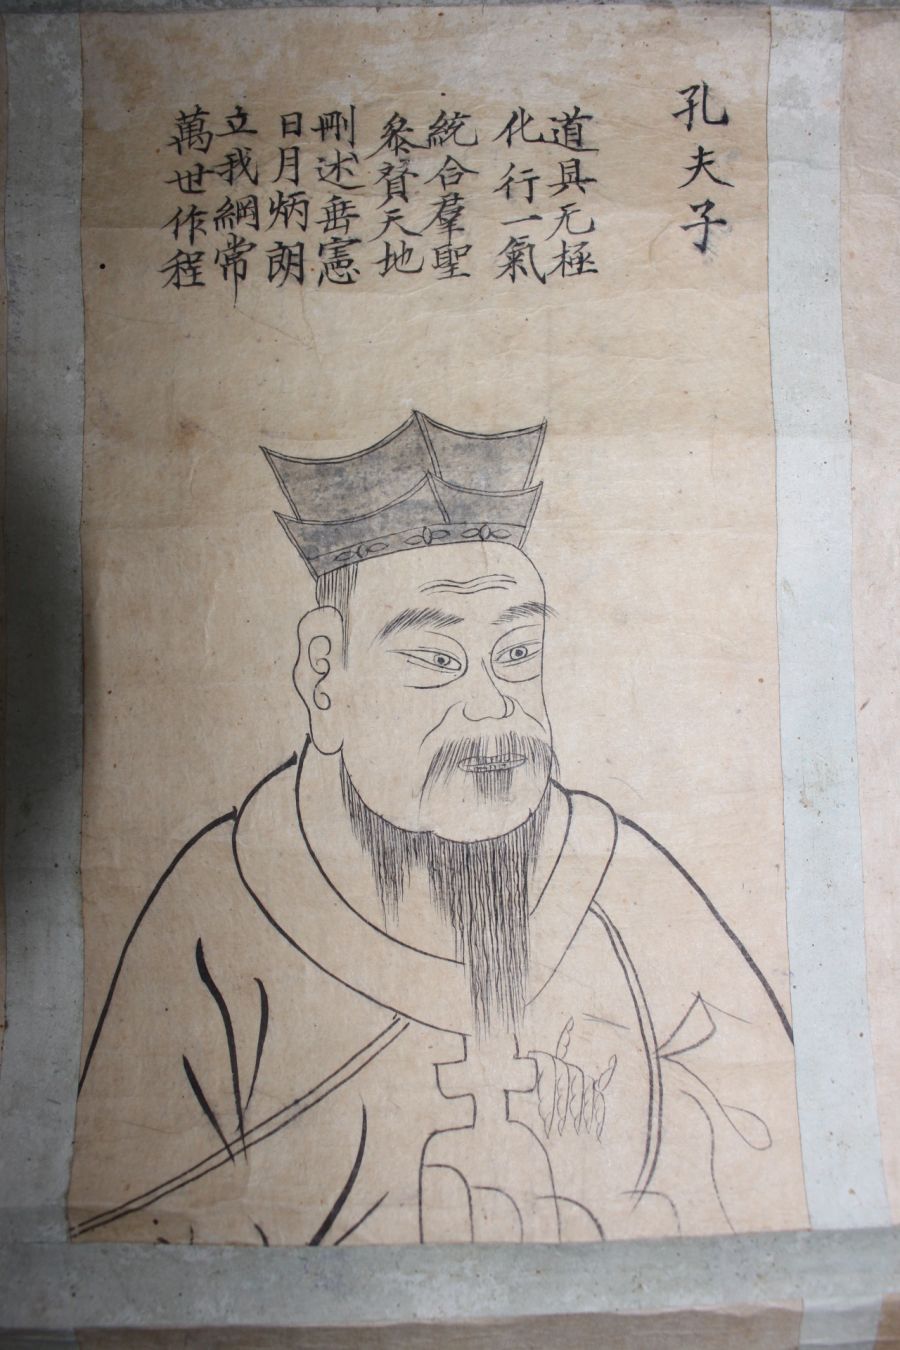 孔夫子
道具无極
化行一氣
統合羣聖
叅贊天地
刪述垂憲
日月炳朗
立我綱常
萬世作程